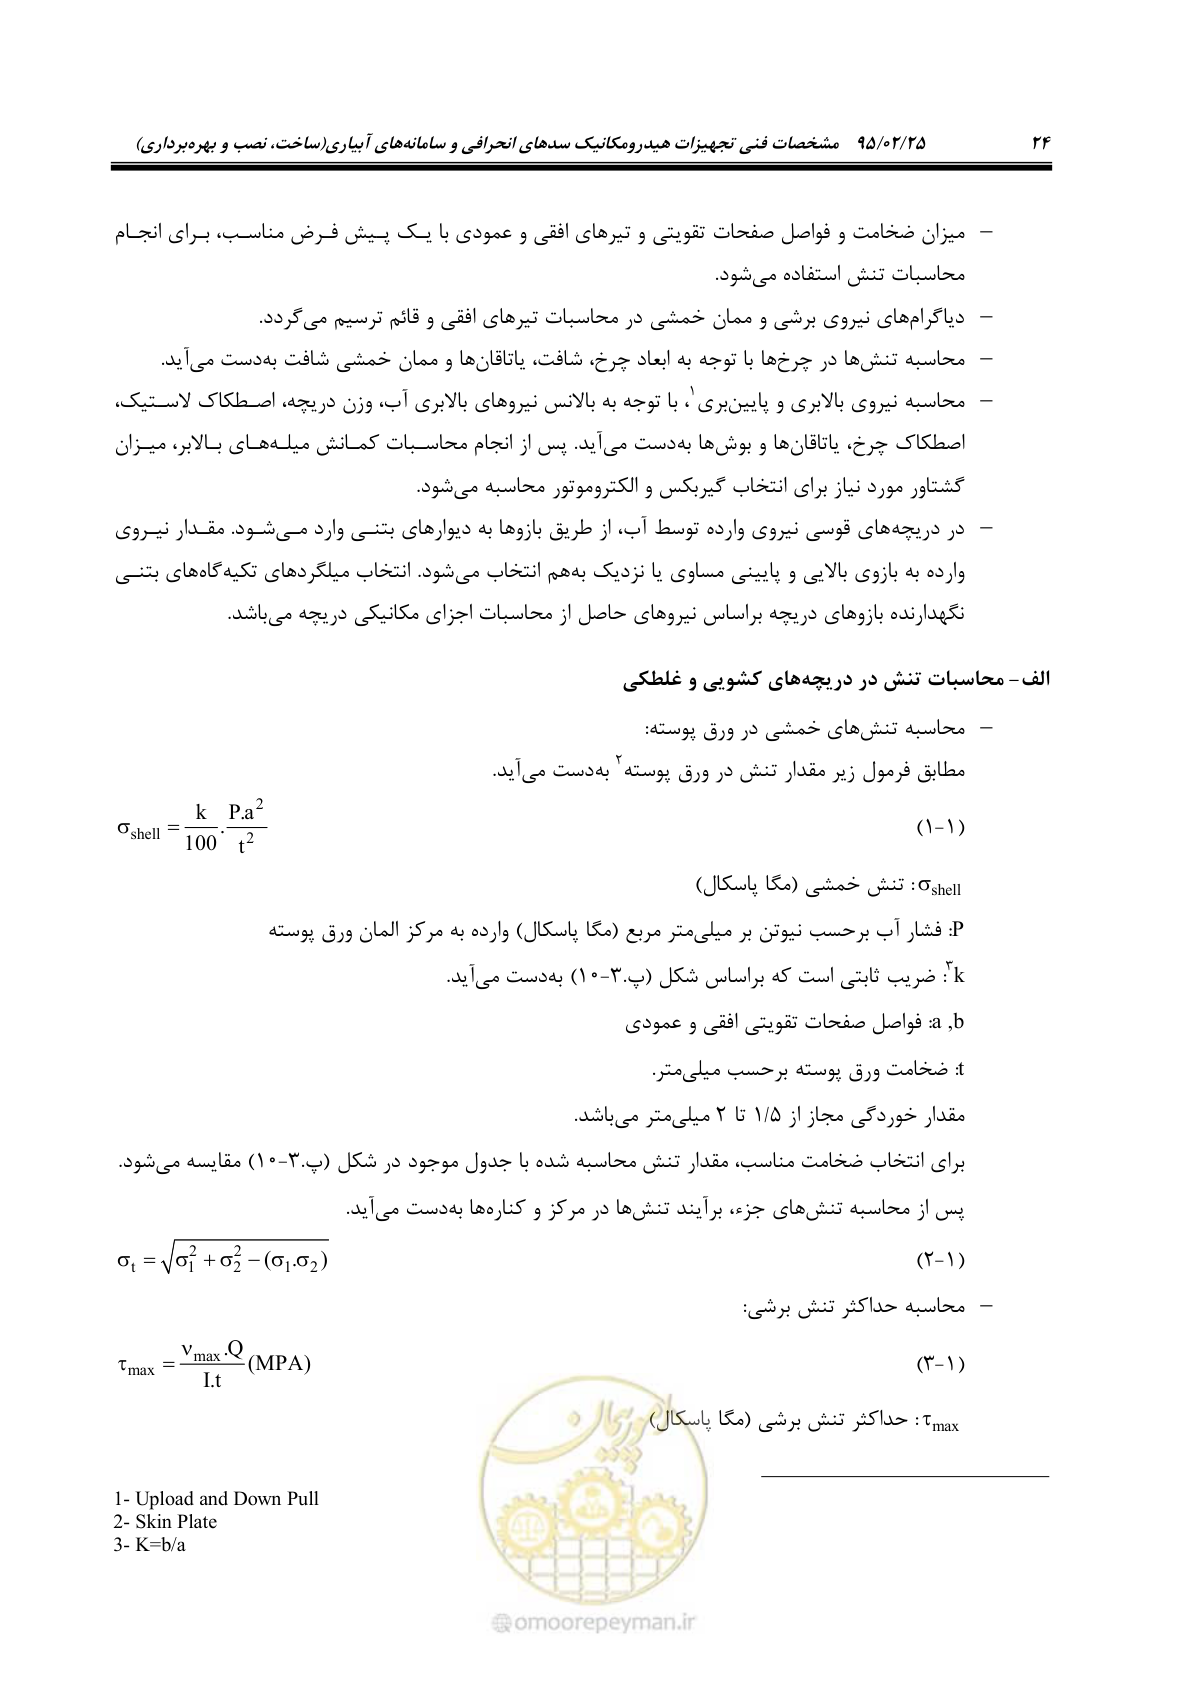 ۲۴ ۹۵/۰۲/۲۵ مشخصات فنی تجهیزات هیدرومکانیک سدهای انحرافی و سامانه‌های آبیاری(ساخت، نصب و بهره‌برداری)
– میزان ضخامت و فواصل صفحات تقویتی و تیرهای افقی و عمودی با یک پیش فرض مناسب، برای انجام
محاسبات تنش استفاده می‌شود.
– دیاگرام‌های نیروی برشی و ممان خمشی در محاسبات تیرهای افقی و قائم ترسیم می‌گردد.
– محاسبه تنش‌ها در چرخ‌ها با توجه به ابعاد چرخ، شافت، یاتاقان‌ها و ممان خمشی شافت به‌دست می‌آید.
– محاسبه نیروی بالابری و پایین‌بری۱، با توجه به بالانس نیروهای بالابری آب، وزن دریچه، اصطکاک لاستیک،
اصطکاک چرخ، یاتاقان‌ها و بوش‌ها به‌دست می‌آید. پس از انجام محاسبات کمانش میله‌های بالابر، میزان
گشتاور مورد نیاز برای انتخاب گیربکس و الکتروموتور محاسبه می‌شود.
– در دریچه‌های قوسی نیروی وارده توسط آب، از طریق بازوها به دیوارهای بتنی وارد می‌شود. مقدار نیروی
وارده به بازوی بالایی و پایینی مساوی یا نزدیک به‌هم انتخاب می‌شود. انتخاب میلگردهای تکیه‌گاه‌های بتنی
نگهدارنده بازوهای دریچه براساس نیروهای حاصل از محاسبات اجزای مکانیکی دریچه می‌باشد.
الف- محاسبات تنش در دریچه‌های کشویی و غلطکی
– محاسبه تنش‌های خمشی در ورق پوسته:
مطابق فرمول زیر مقدار تنش در ورق پوسته۲ به‌دست می‌آید.
(۱-۱) σshell = k/100 . P.a²/t²
σshell : تنش خمشی (مگا پاسکال)
P: فشار آب برحسب نیوتن بر میلی‌متر مربع (مگا پاسکال) وارده به مرکز المان ورق پوسته
k۳: ضریب ثابتی است که براساس شکل (پ.۳-۱۰) به‌دست می‌آید.
a ,b: فواصل صفحات تقویتی افقی و عمودی
t: ضخامت ورق پوسته برحسب میلی‌متر.
مقدار خوردگی مجاز از ۱/۵ تا ۲ میلی‌متر می‌باشد.
برای انتخاب ضخامت مناسب، مقدار تنش محاسبه شده با جدول موجود در شکل (پ.۳-۱۰) مقایسه می‌شود.
پس از محاسبه تنش‌های جزء، برآیند تنش‌ها در مرکز و کناره‌ها به‌دست می‌آید.
(۲-۱) σt = √(σ₁² + σ₂² − (σ₁.σ₂))
– محاسبه حداکثر تنش برشی:
(۳-۱) τmax = νmax.Q/I.t (MPA)
τmax : حداکثر تنش برشی (مگا پاسکال)
1- Upload and Down Pull
2- Skin Plate
3- K=b/a
امور پیمان
@omoorepeyman.ir